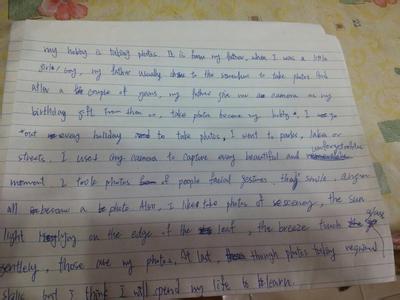 my hobby is taking photos. It is from my father, when I was a little
girl / boy, my father usually to the somewhere to take photos. And
after a couple of years, my father give me a camera as my
birthday gift. From then on, take photos become my hobby. I go
out every holiday to take photos, I went to parks, lakes or
streets. I used my camera to capture every beautiful and unforgettable
moment. I took photos of people facial gestures, they smile,
all became a photo. Also, I like take photos of scenery, the sun
light on the edge of the leaf, the breeze touch the grass
gently, those are my photos. At last, though photos taking
skills but I think I will spend my life to learn.